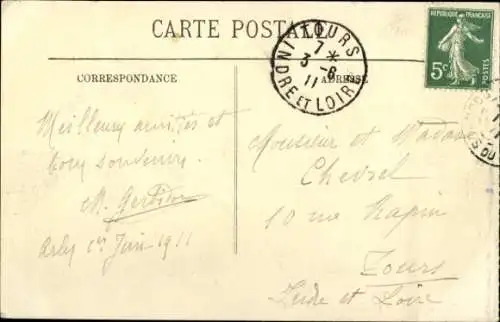 CARTE POSTALE
CORRESPONDANCE
ADRESSE
TOURS
7 *
3 - 6
11
INDRE ET LOIRE
REPUBLIQUE FRANÇAISE
5c
POSTES
Meilleures amitiés et
bon souvenir.
M.
1er Juin 1911
Monsieur et Madame
Chevrel
10 rue Rapin
Tours
Indre et Loire